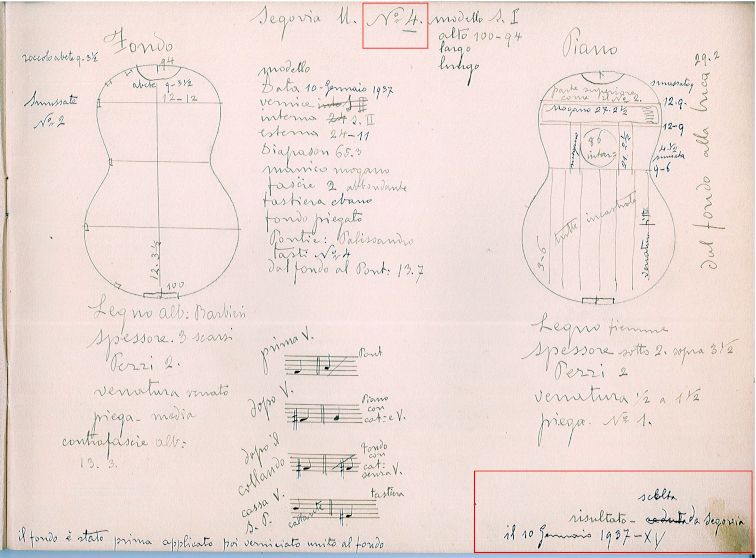 Segovia 11. Nº 4. modello S. I
alto 100-94
largo
lungo
Fondo
zoccolo abete 9-3½
Smussato
Nº 2
94
abete 9-3½
12-12
12.3½
100
Legno alb: Barbieri
spessore. 3 scarsi
Pezzi 2.
venatura venato
piega-media
contrafascie alb:
13. 3.
modello
Data 10-Gennaio 1937
vernice
interna 24 S. II
esterna 24-11
Diapason 65.3
manico mogano
fascie 2 abbondante
tastiera ebano
fondo piegato
Ponti: Palissandro
tasti Nº 4
dal fondo al Pont: 13.7
prima V.
Pont
dopo V.
Piano
con
cat: e V.
dopo il
collaudo
fondo
con
cat:
senza V.
cassa V.
S. P.
tastiera
Piano
29.2
dal fondo alla buca
parte superiore
come il Nº 2.
Mogano 27.2½
smussato 9
12.9.
12-9
4½
9-6
mogano
86
intars
21. 2½
3-6
tutte incastrate
venatura fitta
Legno fiemme
Spessore sotto 2. sopra 3½
Pezzi 2
venatura ½ a 1½
piega. Nº 1.
scelta
risultato - da Segovia
il 10 Gennaio 1937-XV
il fondo è stato prima applicato poi verniciato unito al fondo